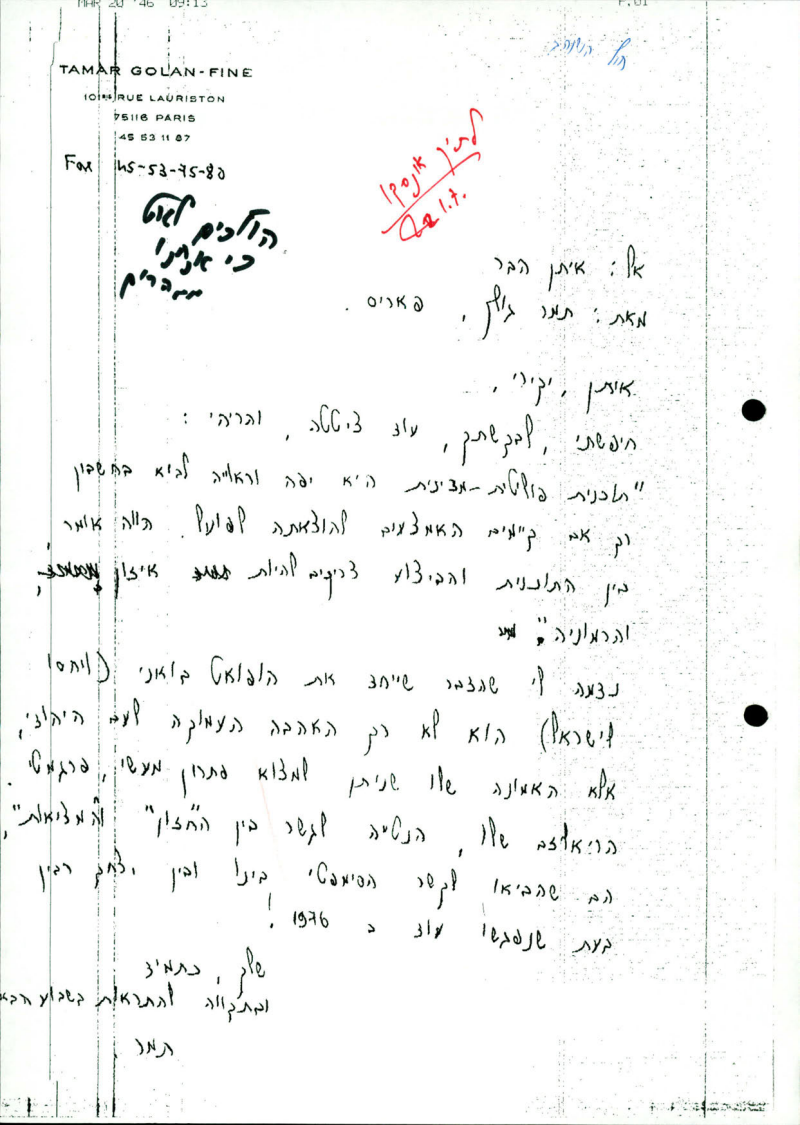 MAR 20 '46 09:13 P.01
TAMAR GOLAN-FINE
RUE LAURISTON
75116 PARIS
45 53 11 87
Fax 45-53-75-80
הולכים לאט
כי אנחנו
ממהרים
לתיק אונסקו
אל: איתן הבר
מאת: תמר גולן, פאריס.
איתן, יקירי,
חיפשתי, לבקשתך, עוד ציטטה, והריהי:
"תוכנית פוליטית-מדינית היא יפה וראוייה לבוא בחשבון
רק אם קיימים האמצעים להוצאתה לפועל. הווה אומר,
בין התוכנית והביצוע צריכים להיות איזון,
והרמוניה".
נדמה לי שהדבר שייחד את הופואט בואני (ויחסו
לישראל) הוא לא רק האהבה העמוקה לעם היהודי,
אלא האמונה שלו שניתן למצוא פתרון מעשי, פרגמטי.
הריאליזם שלו, הנטייה לגשר בין ה"חזון" וה"מציאות",
הם שהביאו לקשר הסימפטי בינו ובין יצחק רבין
בעת שנפגשו עוד ב 1976!
שלך, כתמיד
ובתקווה להתראות בשבוע הבא
תמר.